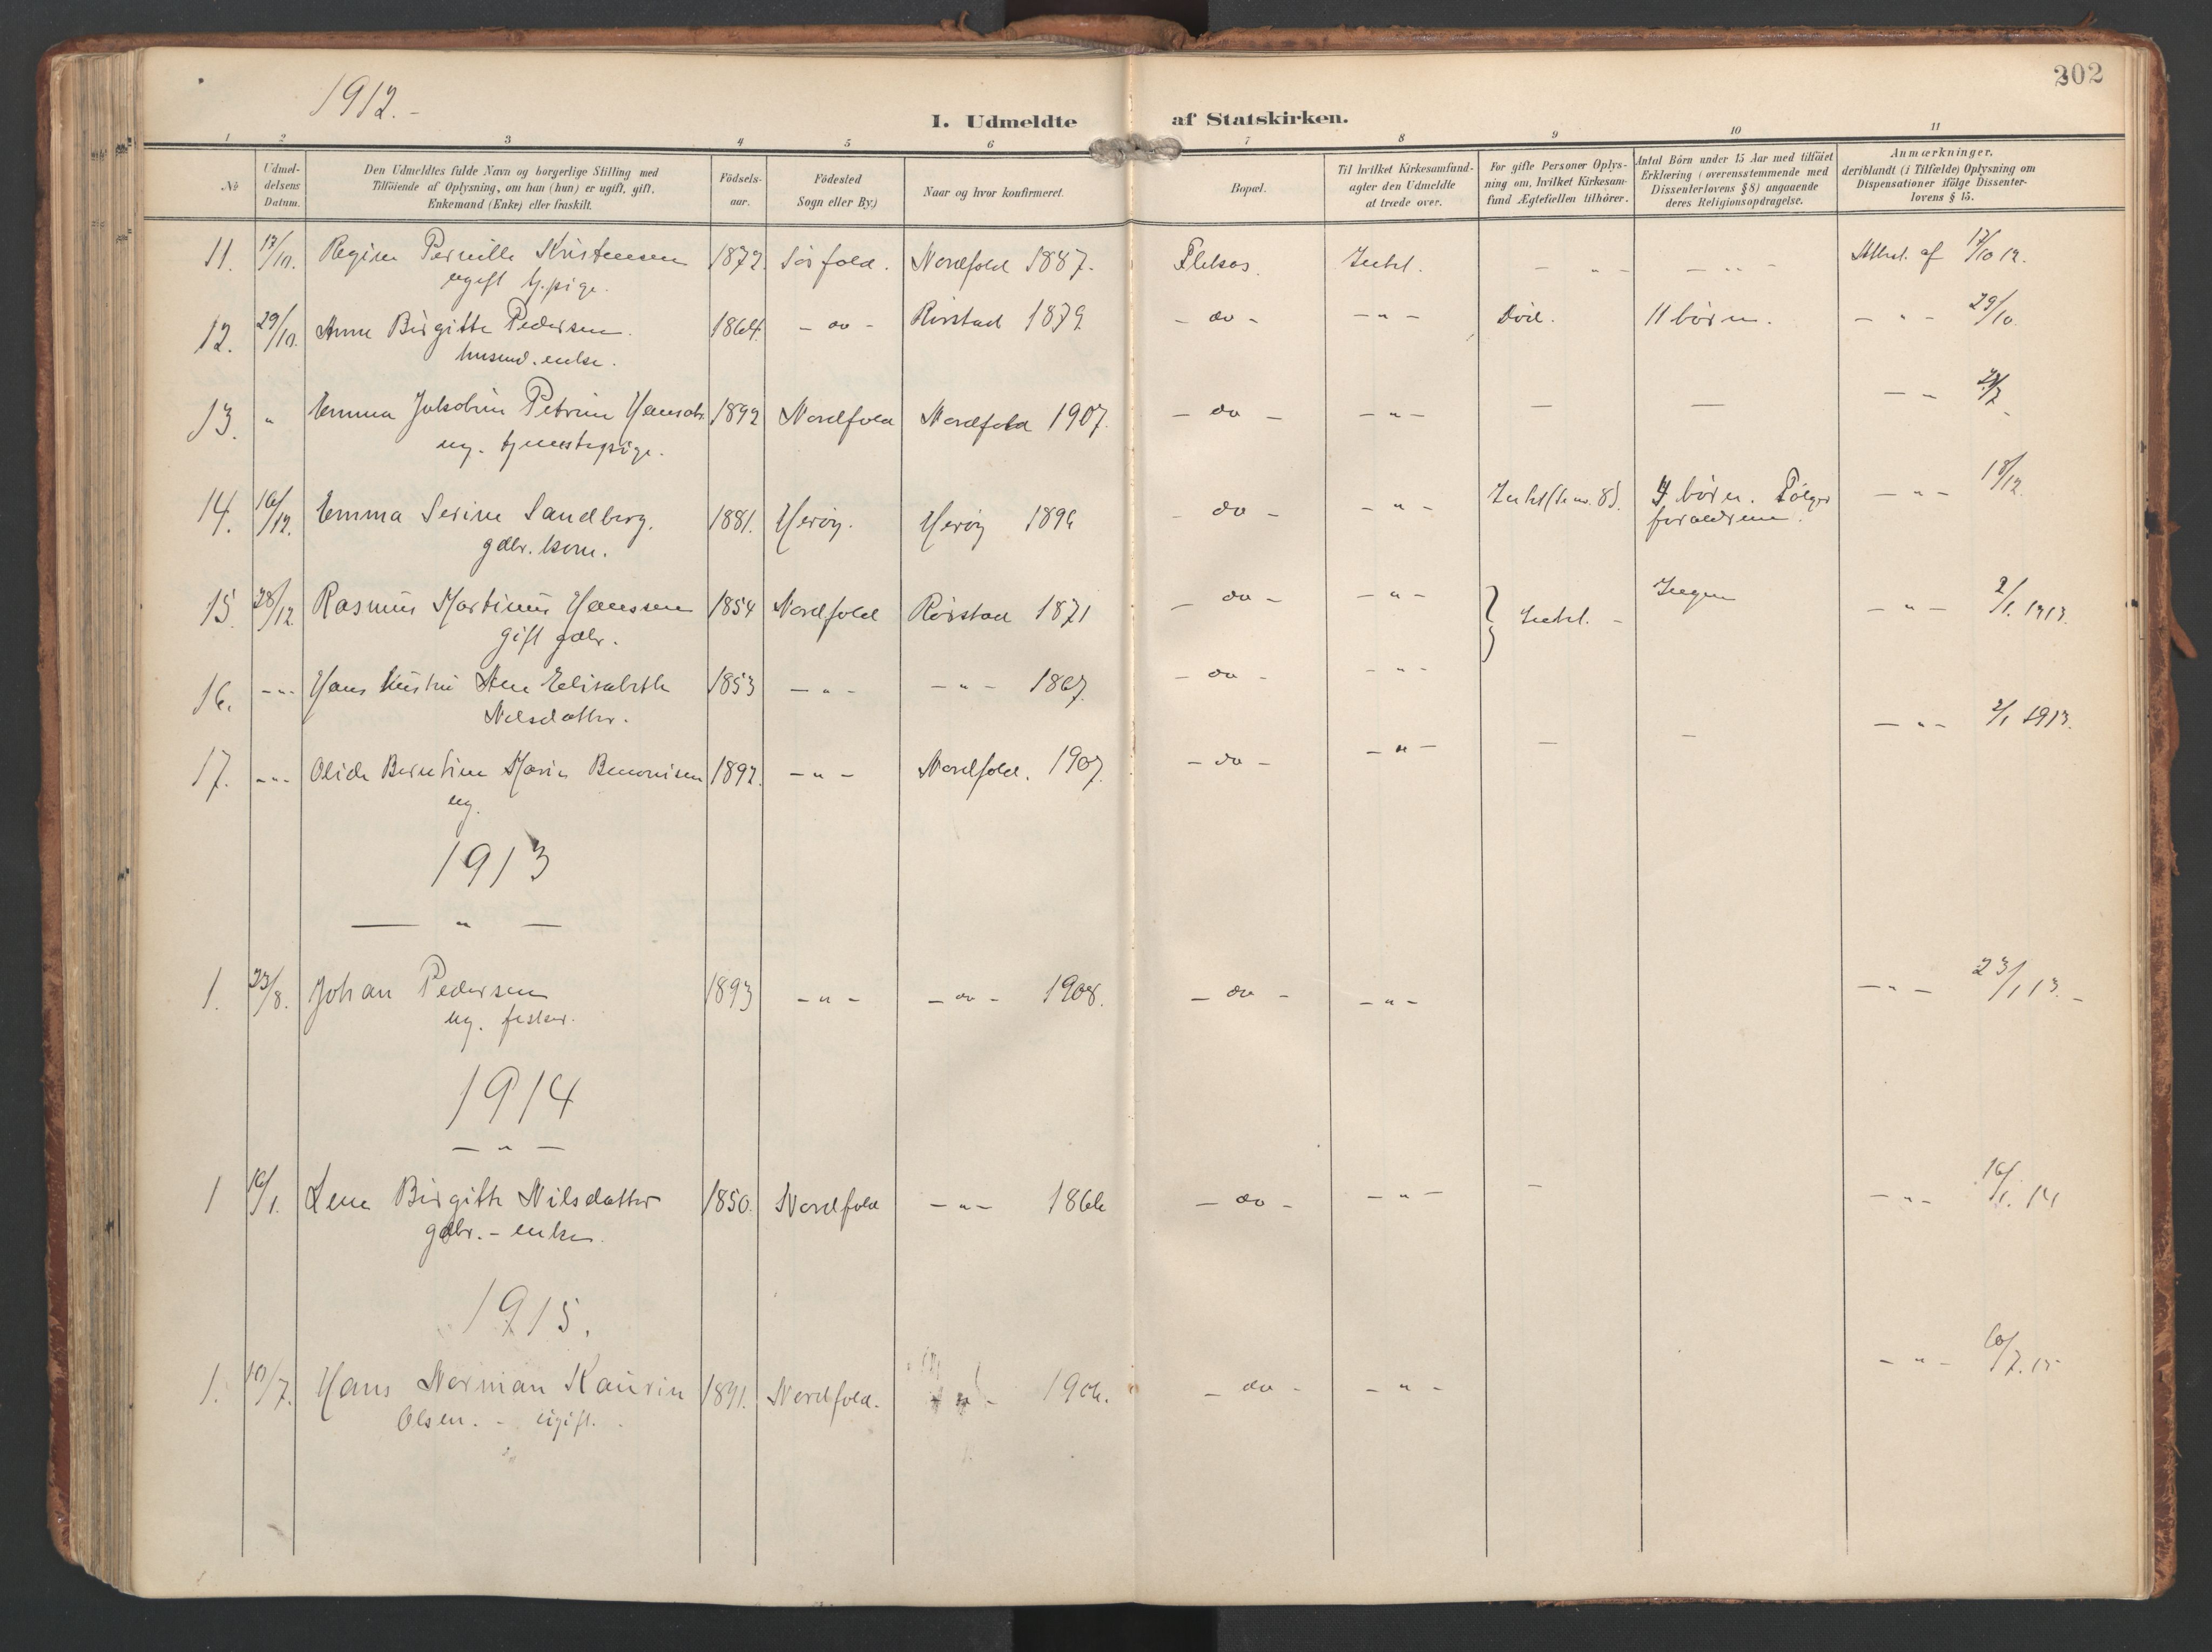 1912.-
202
1. Udmeldte af Statskirken.
1 2 3 4 5 6 7 8 9 10 11
No
Udmel-
delsens
Datum.
Den Udmeldtes fulde Navn og borgerlige Stilling med
Tilföiende af Oplysning, om han (hun) er ugift, gift,
Enkemand (Enke) eller fraskilt.
Födsels-
aar.
Födested
Sogn eller By.)
Naar og hvor konfirmeret.
Bopæl.
Til hvilket Kirkesamfund
agter den Udmeldte
at træde over.
For gifte Personer Oplys-
ning om, hvilket Kirkesam-
fund Ægtefællen tilhörer.
Antal Börn under 15 Aar med tilföiet
Erklæring (overensstemmende med
Dissenterlovens § 8) angaaende
deres Religionsopdragelse.
Anmærkninger,
deriblandt (i Tilfælde) Oplysning om
Dispensationer ifölge Dissenter-
lovens § 15.
11. 17/10. Regine Pernille Kristensen 1872. Sørfold. Nordfold 1887. - " - - " - Attest. af 17/10 12.
ugift tj.pige.
12. 29/10. Anne Birgitte Pedersen. 1864. - do - Rörstad 1879. - do - - " - Död. 11 börn. - " - 29/10.
husmd. enke.
13. " Emma Jakobine Petrine 1892 Nordfold Nordfold 1907. - do - - " - - - - -
ug. tjenestepige.
14. 16/12. Emma Serine Sandberg. 1881. Heröy. Heröy 1896 - do - - " - 4 börn. Fölger - " - 18/12.
gdbr. kone. foraldrene.
15. 28/12 Rasmus Martinus Hanssen 1854 Nordfold Rörstad 1871 - do - - " - Ingen - " - 2/1. 1913.
gift gdbr.
16. - " - Hans hustru Ane Elisabeth 1853 - " - - " - 1867. - do - - " -
Nilsdatter.
17. - " - Olide Berntine Marie Benonisen 1892. - " - Nordfold. 1907. - do - - " - - - - " - 2/1 1913.
ug.
1913
- " -
1. 23/8. Johan Pedersen 1893 - " - - do - 1908. - do - - " - - " - 23/1 13. -
ug. fisker.
1914
- " -
1 16/1. Lena Birgitte Nilsdatter 1850. Nordfold - " - 1866 - do - - " - - - " - 16/1. 14
gdbr. - enke.
1915.
1. 10/7. Hans Norman Kaurin 1891. Nordfold. - " - 1906. - do - - " - - " - 10/7. 15
Olsen. - ugift.